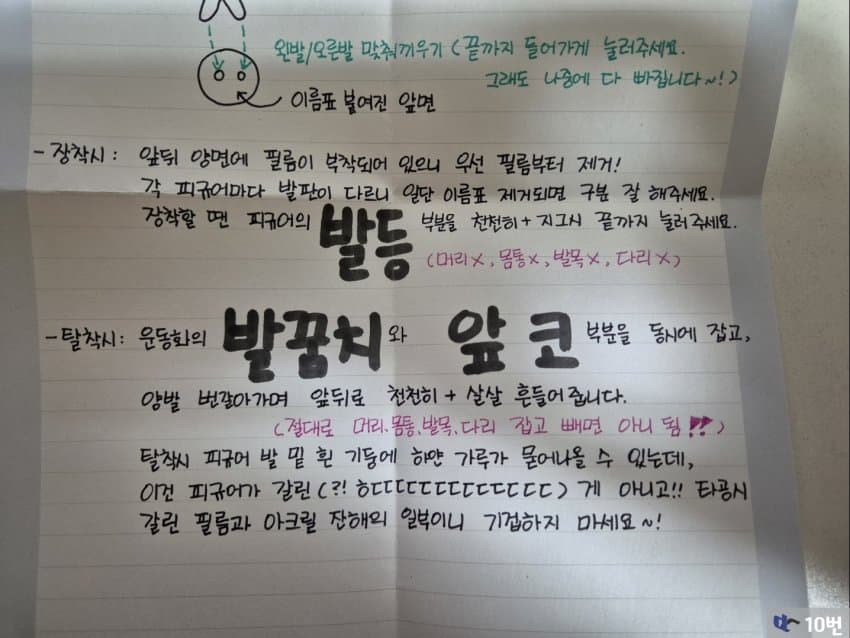 왼발/오른발 맞춰끼우기 (끝까지 들어가게 눌러주세요.
그래도 나중에 다 빠집니다~!)
이름표 붙여진 앞면
- 장착시 : 앞뒤 양면에 필름이 부착되어 있으니 우선 필름부터 제거!
각 피규어마다 발판이 다르니 일단 이름표 제거되면 구분 잘 해주세요.
장착할 땐 피규어의 발등 부분을 천천히 + 지그시 끝까지 눌러주세요.
(머리X, 몸통X, 발목X, 다리X)
- 탈착시 : 운동화의 발꿈치와 앞코 부분을 동시에 잡고,
양발 번갈아가며 앞뒤로 천천히 + 살살 흔들어줍니다.
(절대로 머리, 몸통, 발목, 다리 잡고 빼면 아니 됨!!)
탈착시 피규어 발 밑 흰 기둥에 하얀 가루가 묻어나올 수 있는데,
이건 피규어가 갈린 (?! ㅎㄷㄷㄷㄷㄷㄷㄷㄷㄷㄷㄷㄷㄷ) 게 아니고!! 타공시
갈린 필름과 아크릴 잔해의 일부이니 기겁하지 마세요~!
10번